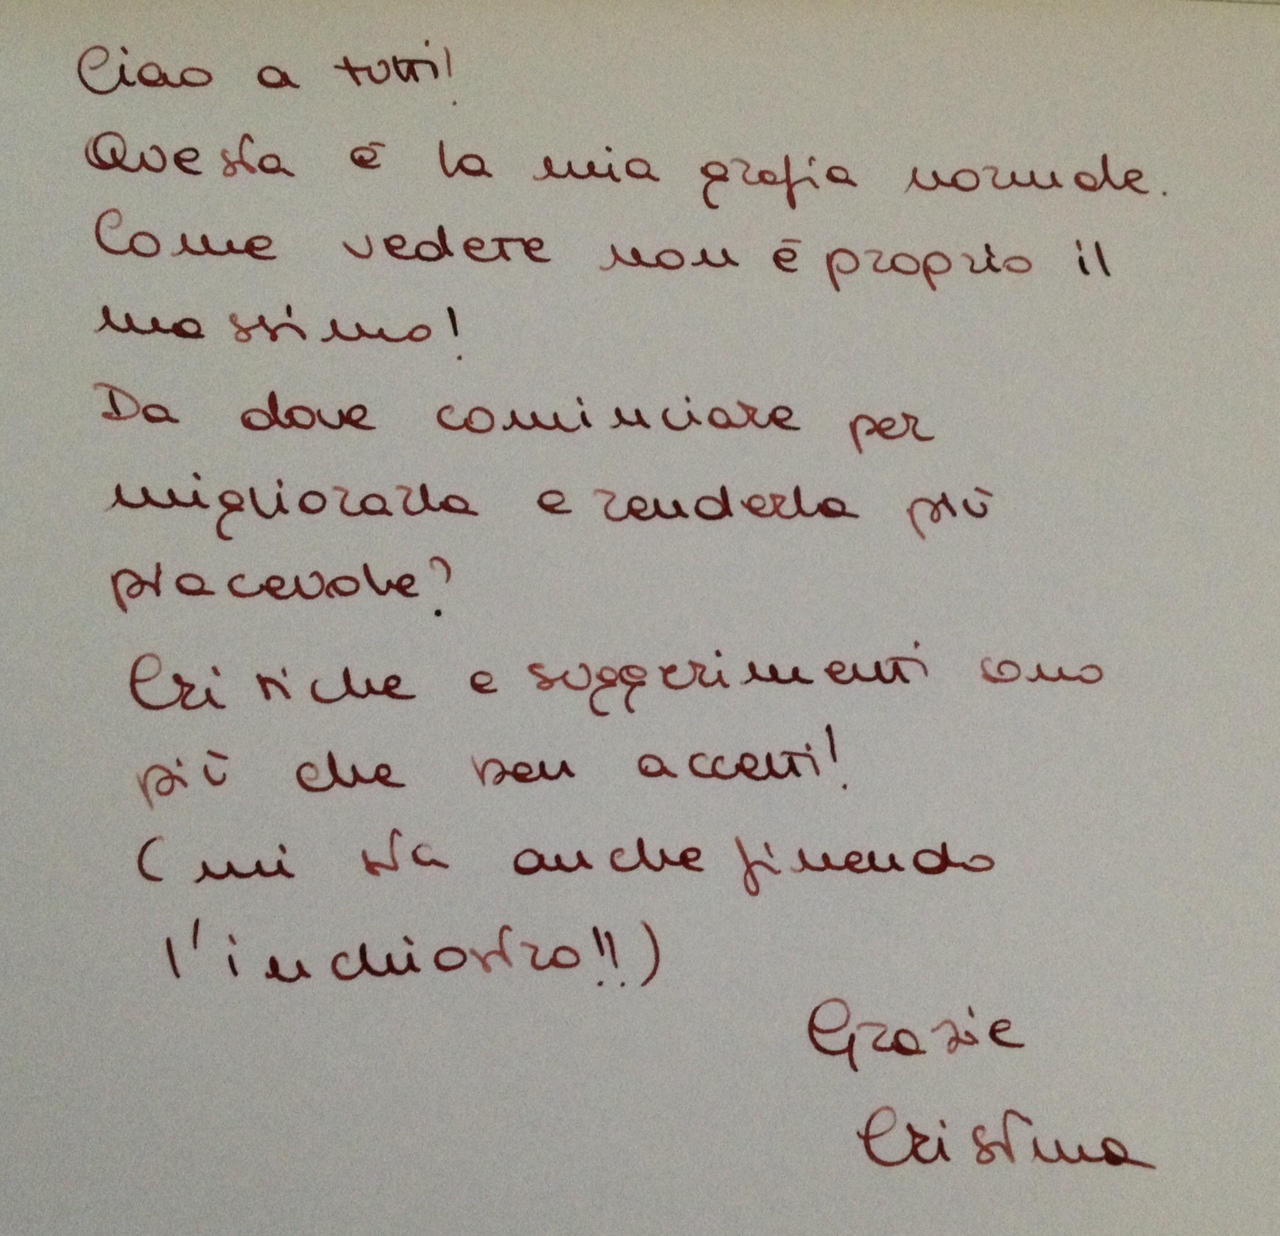 Ciao a tutti!
Questa è la mia grafia normale.
Come vedete non è proprio il
massimo!
Da dove cominciare per
migliorarla e renderla più
piacevole?
Critiche e suggerimenti sono
più che ben accetti!
(mi sta anche finendo
l'inchiostro!!)
Grazie
Cristina